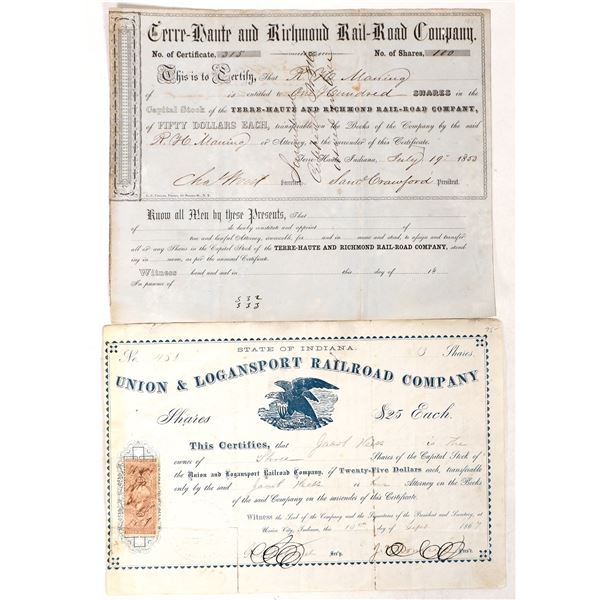 Terre-Haute and Richmond Rail-Road Company.
No. of Certificate, 315 No. of Shares, 100
This is to Certify, That R. H. Maning
of is entitled to One Hundred SHARES in the
Capital Stock of the TERRE-HAUTE AND RICHMOND RAIL-ROAD COMPANY,
of FIFTY DOLLARS EACH, transferable on the Books of the Company by the said
R. H. Maning or Attorney, on the surrender of this Certificate.
Terre-Haute, Indiana, July 19th 1853
Chas Wood Secretary. Saml Crawford President.
Know all Men by these Presents, That
of do hereby constitute and appoint
of true and lawful Attorney, irrevocable, for and in name and stead, to assign and transfer
all or any Shares in the Capital Stock of the TERRE-HAUTE AND RICHMOND RAIL-ROAD COMPANY, stand-
ing in name, as per the annexed Certificate.
Witness hand and seal in this day of 18
In presence of
532
533
STATE OF INDIANA.
No. 451 3 Shares.
UNION & LOGANSPORT RAILROAD COMPANY
Shares $25 Each.
This Certifies, that Jacob is the
owner of Three Shares of the Capital Stock of
the Union and Logansport Railroad Company, of Twenty-Five Dollars each, transferable
only by the said Jacob or his Attorney on the Books
of the said Company on the surrender of this Certificate.
Witness the Seal of the Company and the Signatures of the President and Secretary, at
Union City, Indiana, this 10th day of Sept 1867
Sec'y. Pres't.